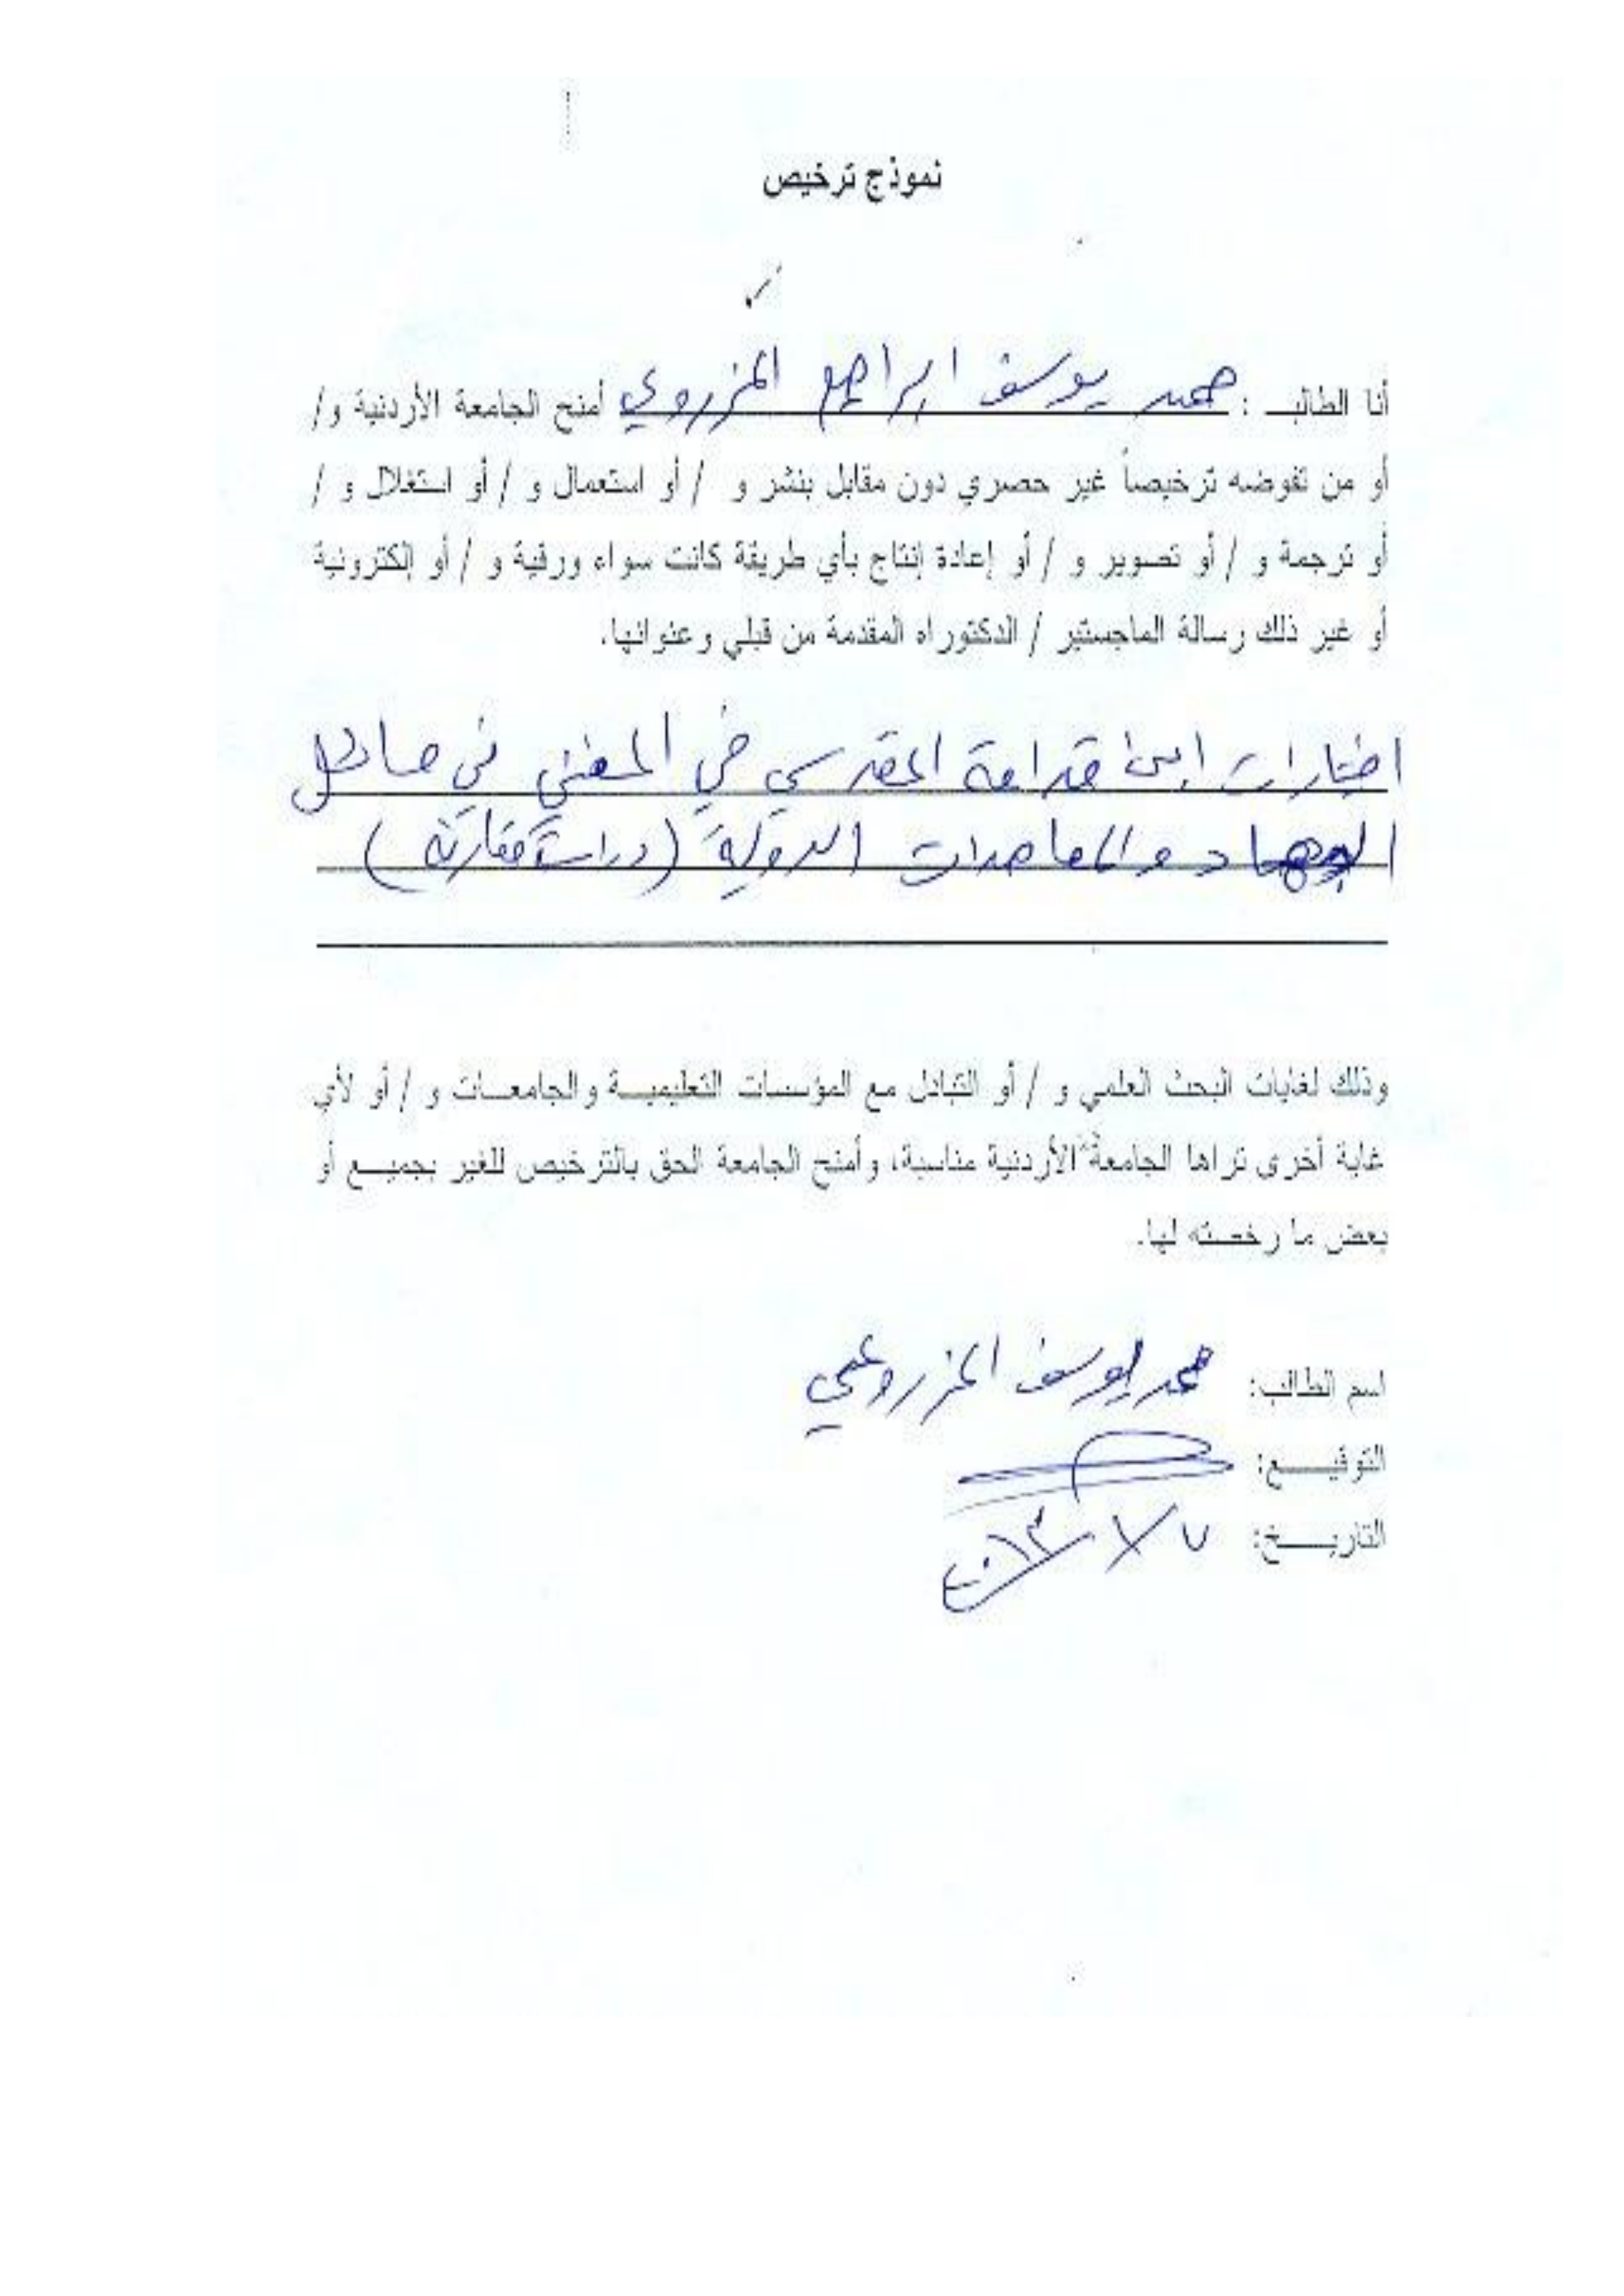 نموذج ترخيص
أنا الطالب : محمد يوسف ابراهيم المزروعي أمنح الجامعة الأردنية و/
أو من تفوضه ترخيصاً غير حصري دون مقابل بنشر و / أو استعمال و / أو استغلال و /
أو ترجمة و / أو تصوير و / أو إعادة إنتاج بأي طريقة كانت سواء ورقية و / أو إلكترونية
أو غير ذلك رسالة الماجستير / الدكتوراه المقدمة من قبلي وعنوانها.
اختيارات ابن قدامة المقدسي في المغني في مسائل
الجهاد والمعاهدات الدولية (دراسة مقارنة)
وذلك لغايات البحث العلمي و / أو التبادل مع المؤسسات التعليمية والجامعات و / أو لأي
غاية أخرى تراها الجامعة الأردنية مناسبة، وأمنح الجامعة الحق بالترخيص للغير بجميع أو
بعض ما رخصته لها.
اسم الطالب: محمد يوسف المزروعي
التوقيع:
التاريخ: ٧ / ٧ / ٢٠١٣